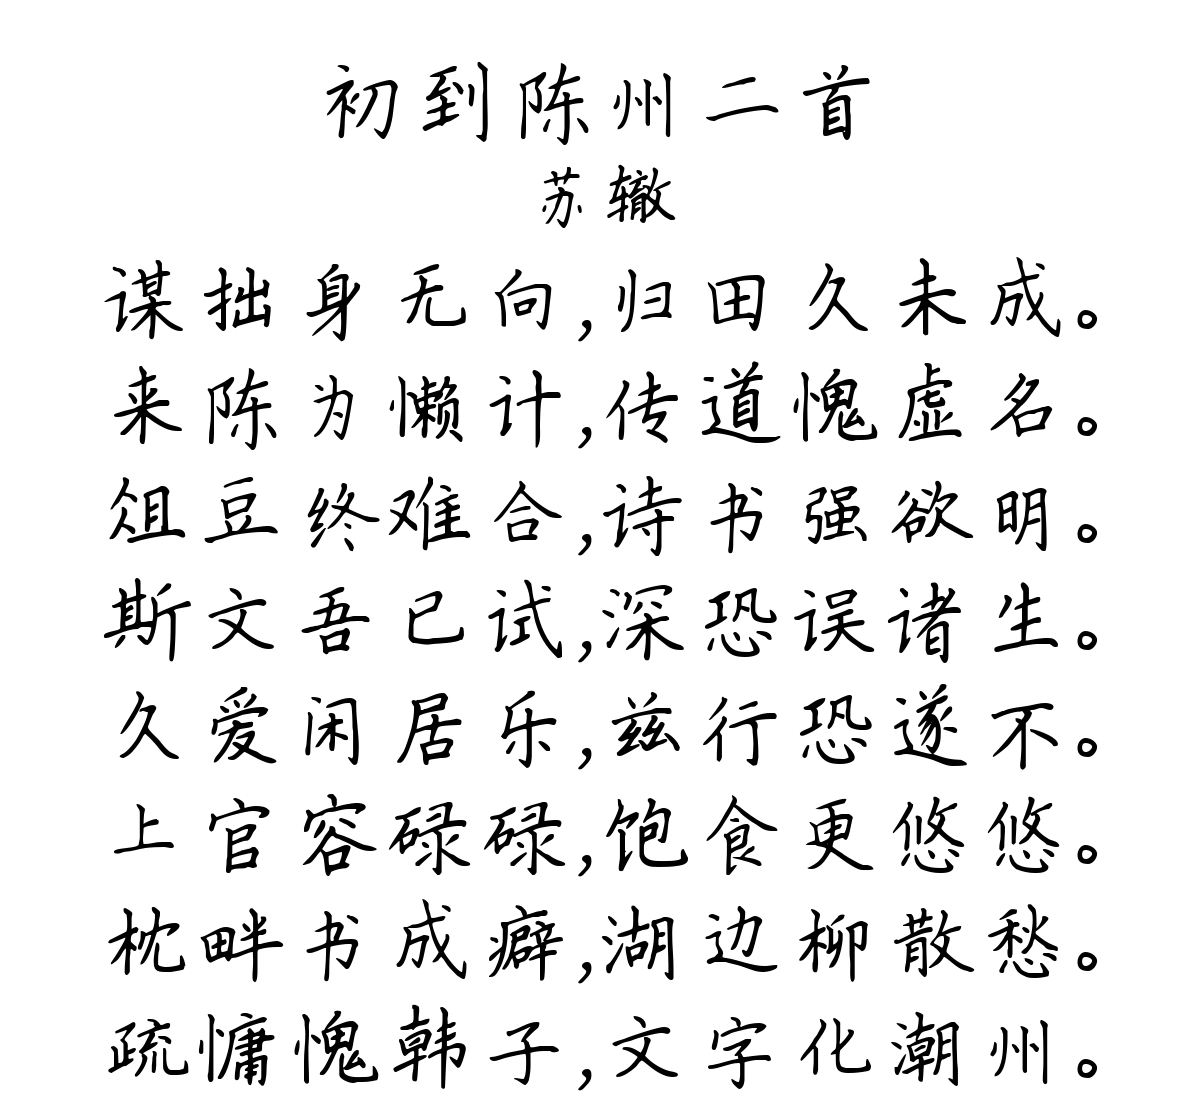 初到陈州二首
苏辙
谋拙身无向,归田久未成。
来陈为懒计,传道愧虚名。
俎豆终难合,诗书强欲明。
斯文吾已试,深恐误诸生。
久爱闲居乐,兹行恐遂不。
上官容碌碌,饱食更悠悠。
枕畔书成癖,湖边柳散愁。
疏慵愧韩子,文字化潮州。